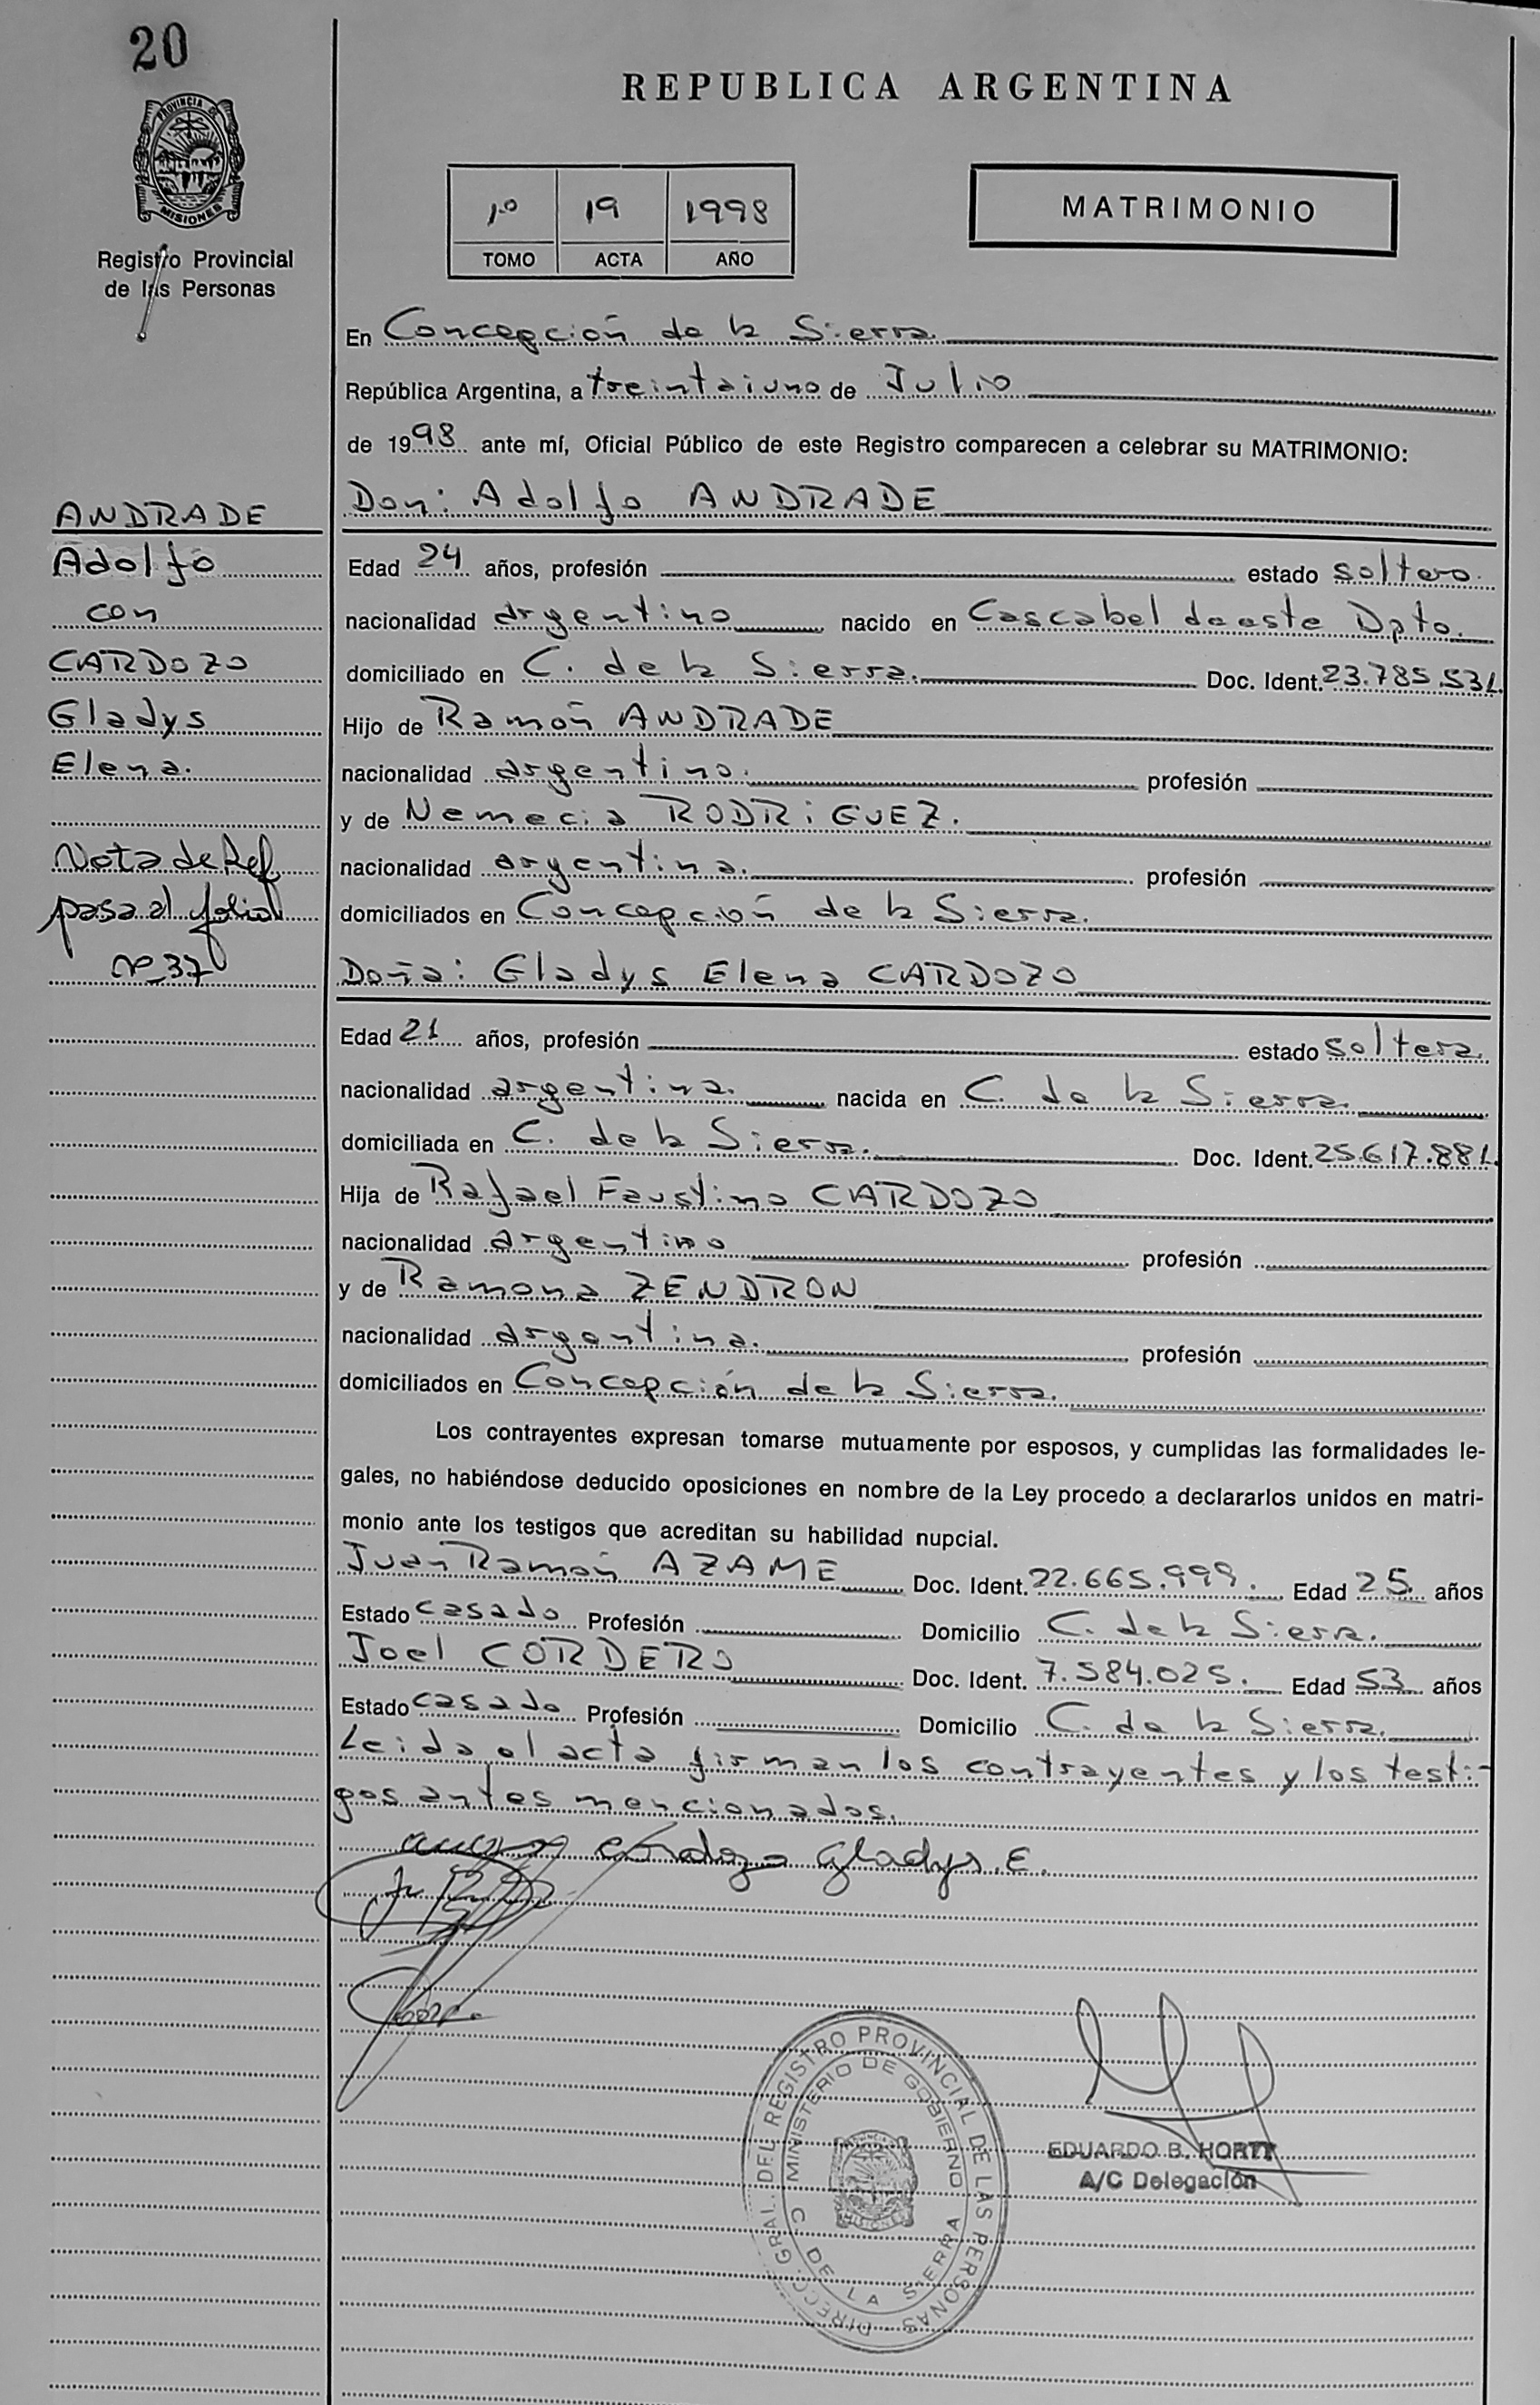 20
PROVINCIA DE
MISIONES
Registro Provincial
de las Personas
REPUBLICA ARGENTINA
1º 19 1998
TOMO ACTA AÑO
MATRIMONIO
En Concepción de la Sierra
República Argentina, a treintaiuno de Julio
de 1998 ante mí, Oficial Público de este Registro comparecen a celebrar su MATRIMONIO:
ANDRADE
Adolfo
con
CARDOZO
Gladys
Elena.
Nota de Ref
pasa al folio
nº 37
Don: Adolfo ANDRADE
Edad 24 años, profesión estado soltero.
nacionalidad argentino nacido en Cascabel de este Dpto.
domiciliado en C. de la Sierra. Doc. Ident. 23.785.531.
Hijo de Ramón ANDRADE
nacionalidad argentino. profesión
y de Nemecia RODRiGUEZ.
nacionalidad argentina. profesión
domiciliados en Concepción de la Sierra.
Doña: Gladys Elena CARDOZO
Edad 21 años, profesión estado soltera.
nacionalidad argentina. nacida en C. de la Sierra.
domiciliada en C. de la Sierra. Doc. Ident. 25.617.881.
Hija de Rafael Faustino CARDOZO
nacionalidad argentino profesión
y de Ramona ZENDRON
nacionalidad argentina. profesión
domiciliados en Concepción de la Sierra.
Los contrayentes expresan tomarse mutuamente por esposos, y cumplidas las formalidades le-
gales, no habiéndose deducido oposiciones en nombre de la Ley procedo a declararlos unidos en matri-
monio ante los testigos que acreditan su habilidad nupcial.
Juan Ramón AZAME Doc. Ident. 22.665.999. Edad 25 años
Estado casado Profesión Domicilio C. de la Sierra.
Joel CORDERO Doc. Ident. 7.584.025. Edad 53 años
Estado casado Profesión Domicilio C. de la Sierra.
Leida el acta firman los contrayentes y los testi-
gos antes mencionados.
Gladys. E.
DIRECC. GRAL. DEL REGISTRO PROVINCIAL DE LAS PERSONAS
MINISTERIO DE GOBIERNO
C DE LA SIERRA
PROVINCIA DE
MISIONES
EDUARDO B. HORTT
A/C Delegación